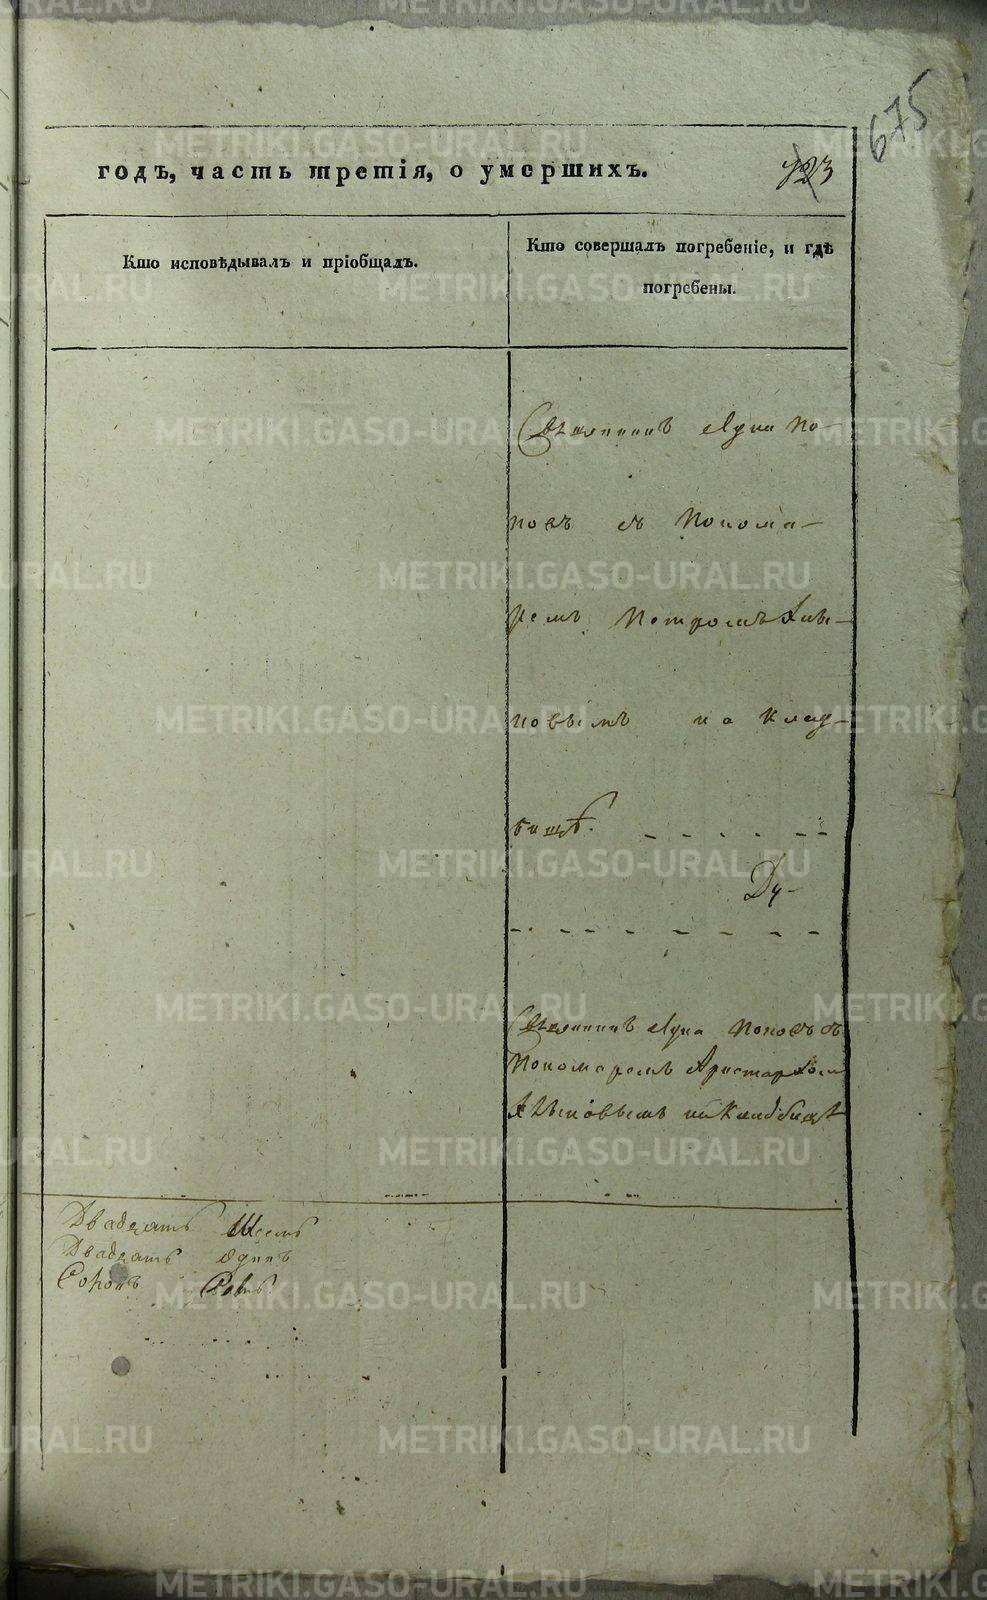 675
годъ, часть третія, о умершихъ.
723
Кто исповѣдывалъ и пріобщалъ.
Кто совершалъ погребеніе, и гдѣ
погребены.
Священникъ Лука По-
повъ съ Понома-
ремъ Петромъ
новымъ на клад-
бищѣ.
Священникъ Лука Поповъ съ
Пономаремъ Аристархом
на Кладбищѣ
Двадцать Шесть
Двадцать Одинъ
Сорокъ
METRIKI.GASO-URAL.RU